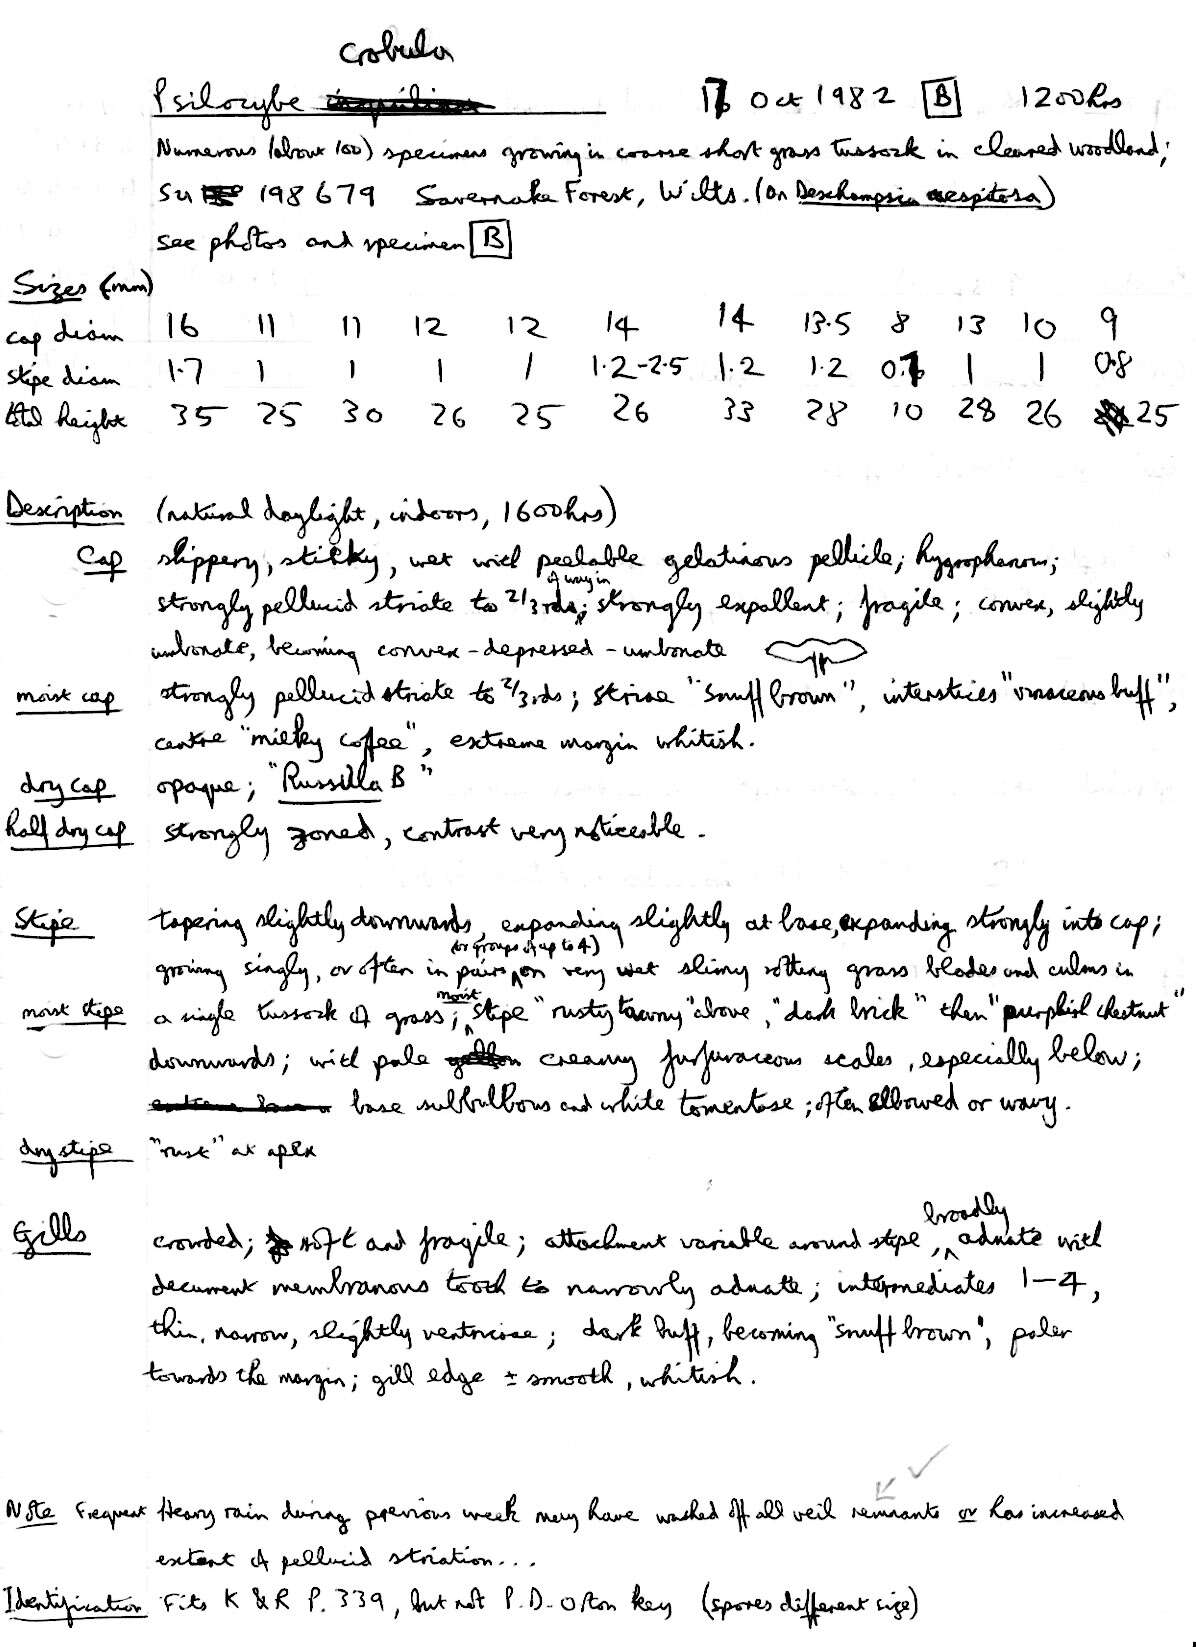 crobula
Psilocybe inquilinus 16 Oct 1982 B 1200hrs
Numerous (about 100) specimens growing in coarse short grass tussock in cleared woodland;
SU 198679 Savernake Forest, Wilts. (On Deschampsia cespitosa)
see photos and specimen B
Sizes (mm)
cap diam 16 11 11 12 12 14 14 13.5 8 13 10 9
stipe diam 1.7 1 1 1 1 1.2-2.5 1.2 1.2 0.7 1 1 0.8
total height 35 25 30 26 25 26 33 28 10 28 26 25
Description (natural daylight, indoors, 1600hrs)
Cap slippery, sticky, wet with peelable gelatinous pellicle; hygrophanous;
of way in
strongly pellucid striate to 2/3rds; strongly expallent; fragile; convex, slightly
umbonate, becoming convex-depressed-umbonate
moist cap strongly pellucid striate to 2/3rds; striae "snuff brown", interstices "vinaceous buff",
centre "milky coffee", extreme margin whitish.
dry cap opaque; "Russilla B"
half dry cap strongly zoned, contrast very noticeable.
Stipe tapering slightly downwards, expanding slightly at base, expanding strongly into cap;
(or groups of up to 4)
growing singly, or often in pairs, on very wet slimy rotting grass blades and culms in
moist
moist stipe a single tussock of grass; stipe "rusty tawny" above, "dark brick" then "purplish chestnut"
downwards; with pale creamy furfuraceous scales, especially below;
base subbulbous and white tomentose; often elbowed or wavy.
dry stipe "rust" at apex
broadly
Gills crowded; soft and fragile; attachment variable around stipe, adnate with
decurrent membranous tooth to narrowly adnate; intermediates 1-4,
thin, narrow, slightly ventricose; dark buff, becoming "snuff brown", paler
towards the margin; gill edge ± smooth, whitish.
Note Frequent Heavy rain during previous week may have washed off all veil remnants or has increased
extent of pellucid striation...
Identification Fits K & R P. 339, but not P.D. Orton key (spores different size)